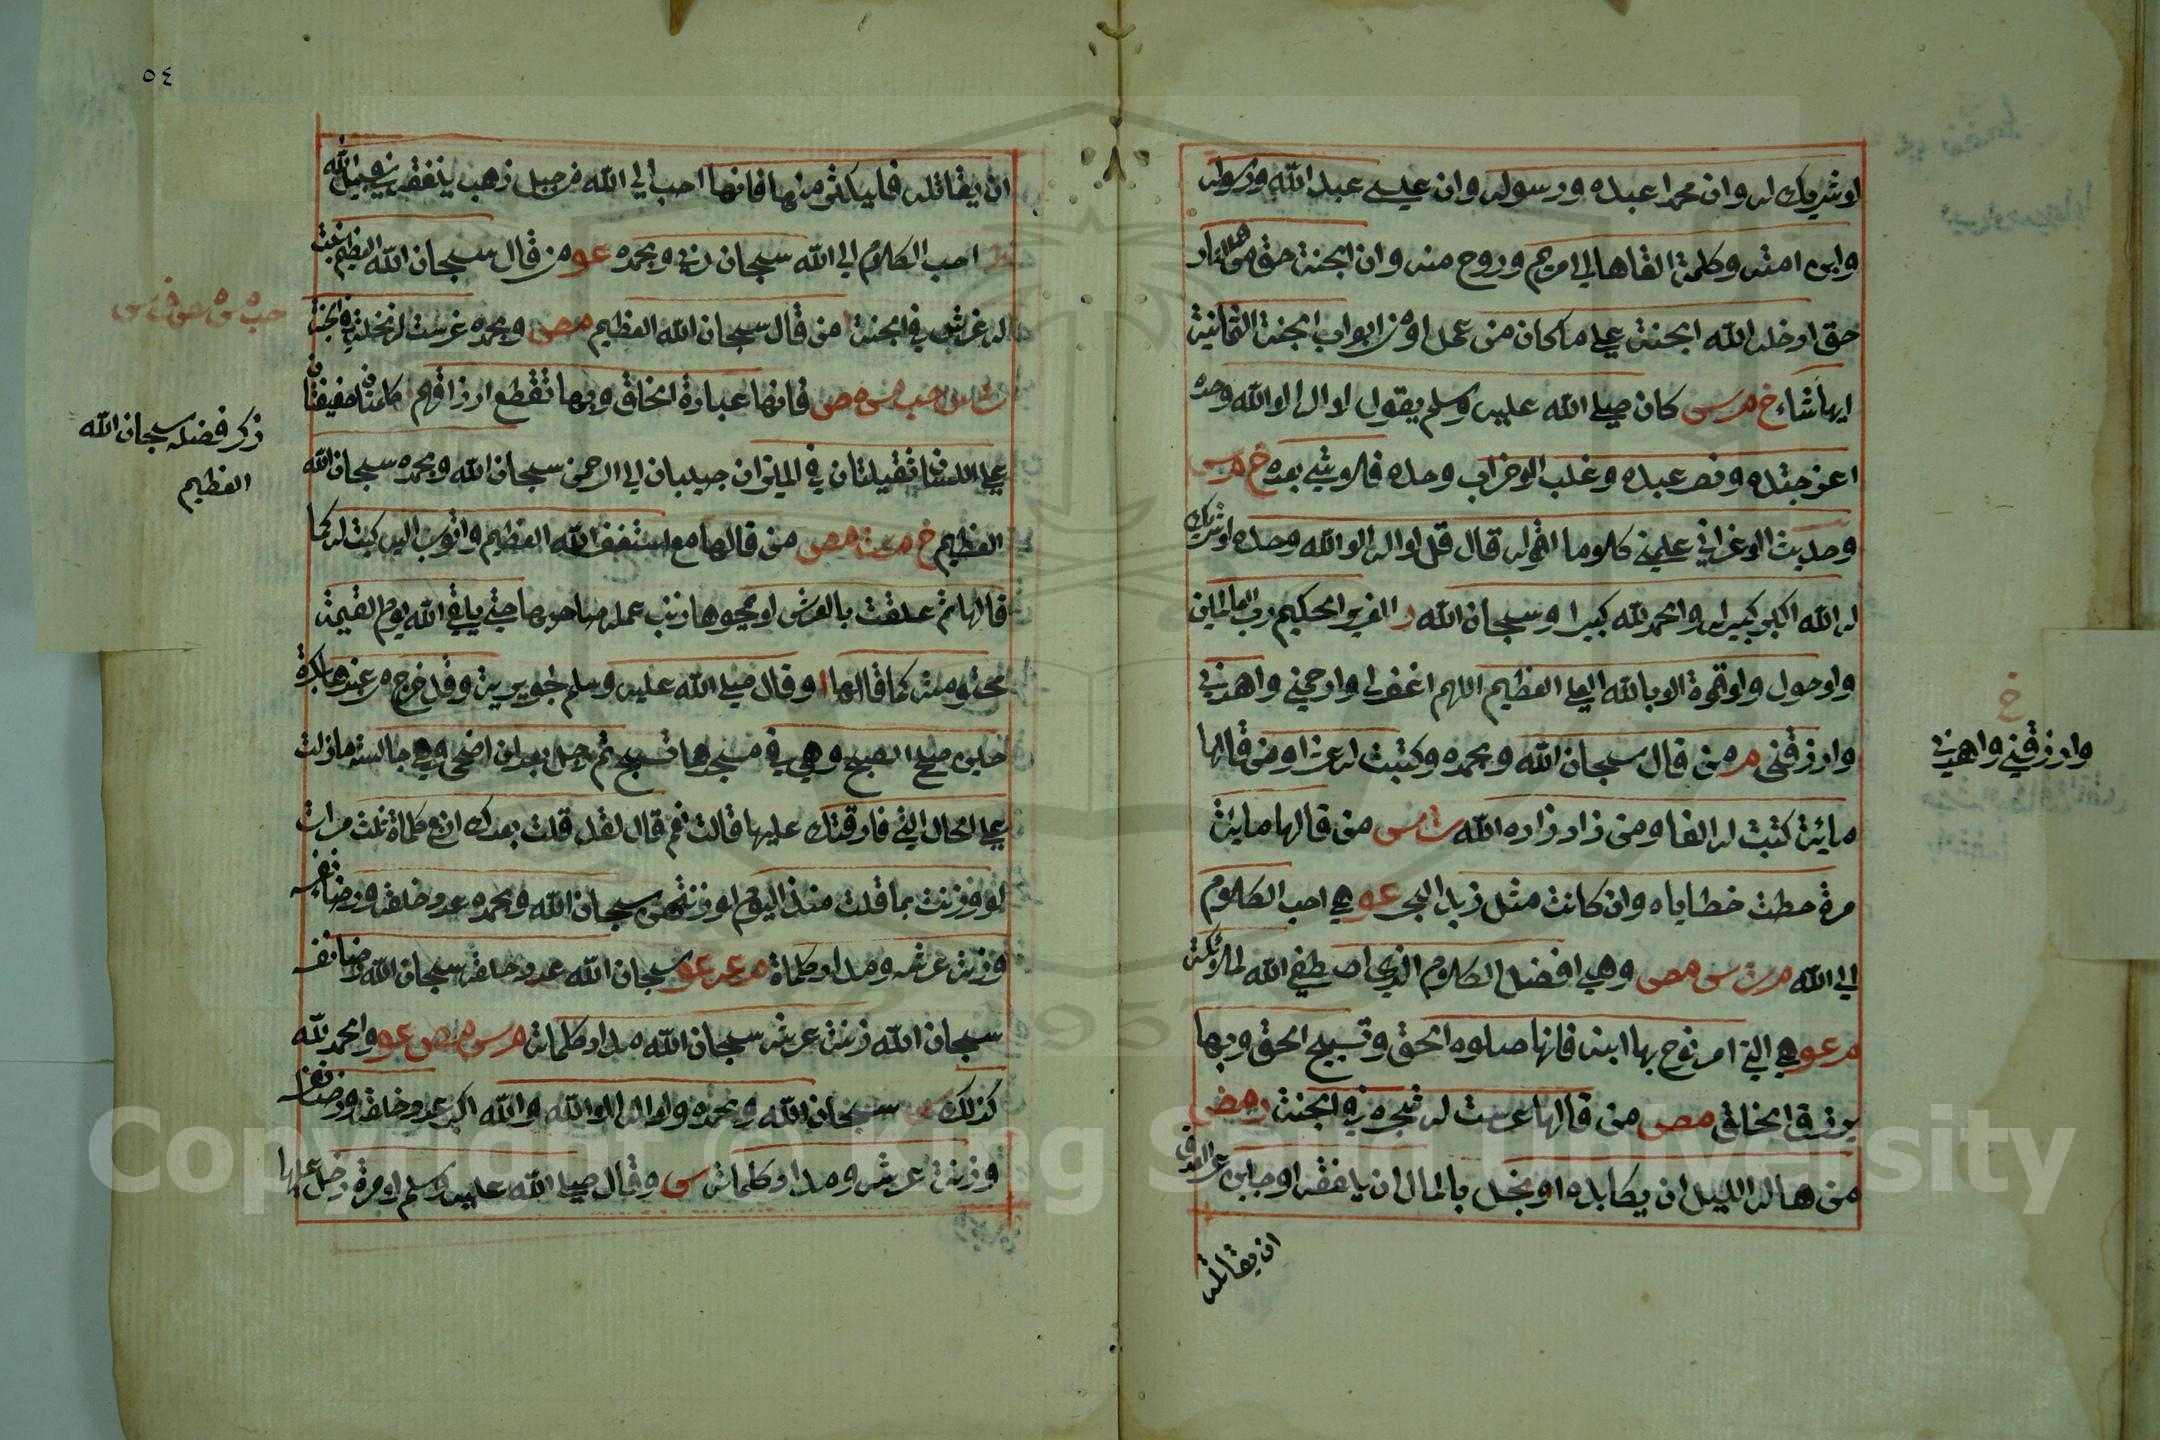 لا شريك له وان محمدا عبده ورسوله وان عيسى عبد الله ورسوله
وابن امته وكلمة القاها الى مريم وروح منه وان الجنة حق والنار
حق ادخله الله الجنة على ما كان من عمل او من ابواب الجنة الثمانية
ايها شاء خ م س كان صلى الله عليه وسلم يقول لا اله الا الله وحده
اعز جنده ونصر عبده وغلب الاحزاب وحده فلا شئ بعده خ م س
وحديث الاعرابي علمني كلاما اقوله قال قل لا اله الا الله وحده لا شريك
له الله اكبر كبيرا والحمد لله كبيرا وسبحان الله العزيز الحكيم رب العالمين
ولا حول ولا قوة الا بالله العلي العظيم اللهم اغفر لي وارحمني واهدني
وارزقني م من قال سبحان الله وبحمده وكتبت له عشرا ومن قالها
مائة كتبت له الفا ومن زاد زاده الله ت س من قالها مائة
مرة حطت خطاياه وان كانت مثل زبد البحر عو هي احب الكلام
الى الله م ت س مص وهي افضل الكلام الذي اصطفى الله لملائكته
م عو هي التي امر نوح بها ابنه فانها صلوه الخلق وتسبيح الخلق وبها
يرزق الخلق مص من قالها غرست له شجرة في الجنة ر مص
من هاله الليل ان يكابده او بخل بالمال ان ينفقه او جبن عن العدو
ان يقاتله
خ
وارزقني واهدني
٥٤
ان يقاتله فليكثر منها فانها احب الى الله من جبل ذهب ينفقه في سبيل الله
احب الكلام الى الله سبحان ربي وبحمده عو من قال سبحان الله العظيم نبت
له غرس في الجنة من قال سبحان الله العظيم مص وبحمده غرست له نخلة في الجنة
ت س حب مس مص فانها عبادة الخلق وبها تقطع ارزاقهم كلمتان خفيفتان
على اللسان ثقيلتان في الميزان حبيبتان الى الرحمن سبحان الله وبحمده سبحان الله
العظيم خ م ت مص من قالها مع استغفر الله العظيم واتوب اليه كتبت له كما
قالها ثم علقت بالعرش لا يمحوها ذنب عمله صاحبها حتى يلقى الله يوم القيمة
مختومة كما قالها وقال صلى الله عليه وسلم لجويرية وقد خرج من عندها بكرة
حين صلى الصبح وهي في مسجدها تسبح ثم رجع بعد ان اضحى وهي جالسة ما زلت
على الحال التي فارقتك عليها قالت نعم قال لقد قلت بعدك اربع كلمات ثلث مرات
لو وزنت بما قلت منذ اليوم لوزنتهن سبحان الله وبحمده عدد خلقه ورضاء نفسه
وزنة عرشه ومداد كلماته م عه عو سبحان الله عدد خلقه سبحان الله رضا نفسه
سبحان الله زنة عرشه سبحان الله مداد كلماته م س مص عو والحمد لله
كذلك س سبحان الله وبحمده ولا اله الا الله والله اكبر عدد خلقه ورضا نفسه
وزنة عرشه ومداد كلماته س وقال صلى الله عليه وسلم لامرة دخل عليها
ذكر فضله سبحان الله
العظيم
Copyright © King Saud University
1957